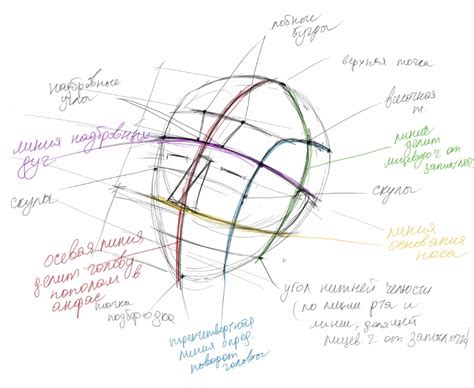 лобные
бугры
верхняя точка
надбровные
углы
височная
т.
линия надбровных
дуг
линия
делит
лицевую ч. от
скулы
скулы
линия
основания
носа
осевая линия
делит голову
пополам в
анфас
точка
подбородка
линия опред.
поворот
головы
угол нижней челюсти
(по линии рта и
линии, делящей
лицев. ч. от